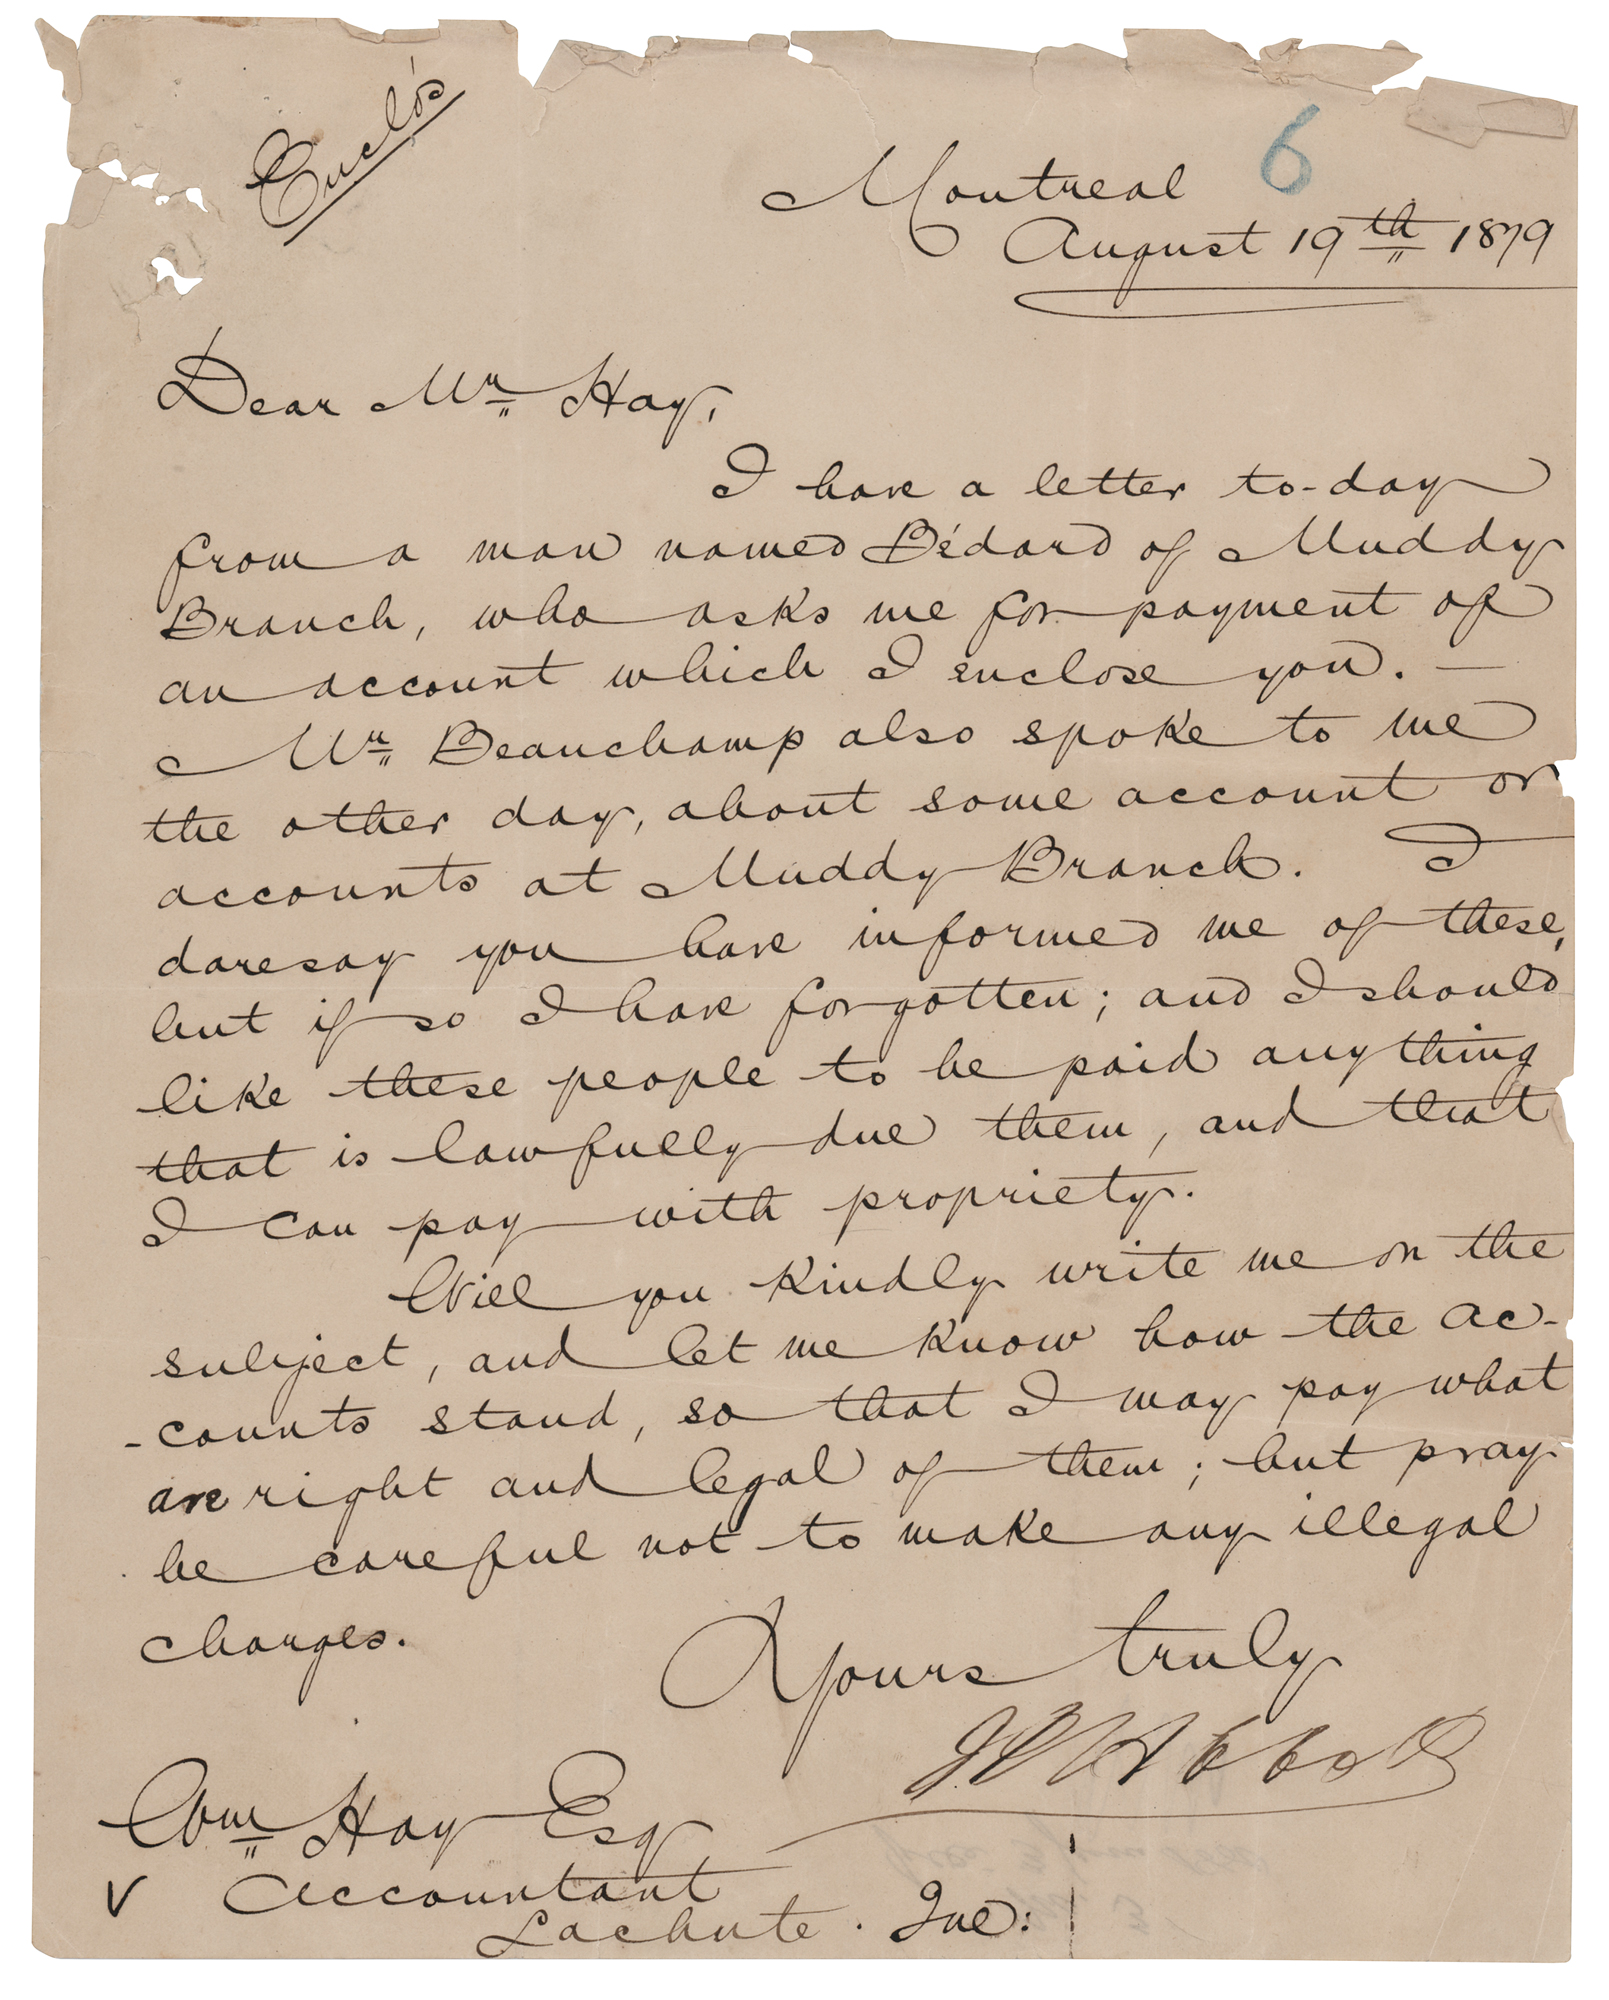 Enclós
6
Montreal
August 19th 1879
Dear Mr Hay,
I have a letter to-day
from a man named Bédard of Muddy
Branch, who asks me for payment of
an account which I enclose you. —
Mr Beauchamp also spoke to me
the other day, about some account or
accounts at Muddy Branch. I
daresay you have informed me of these,
but if so I have forgotten; and I should
like these people to be paid anything
that is lawfully due them, and that
I can pay with propriety.
Will you kindly write me on the
subject, and let me know how the ac-
-counts stand, so that I may pay what
are right and legal of them; but pray
be careful not to make any illegal
charges.
Yours truly
JJC Abbott
Wm Hay Esq
v Accountant
Lachute. Que: